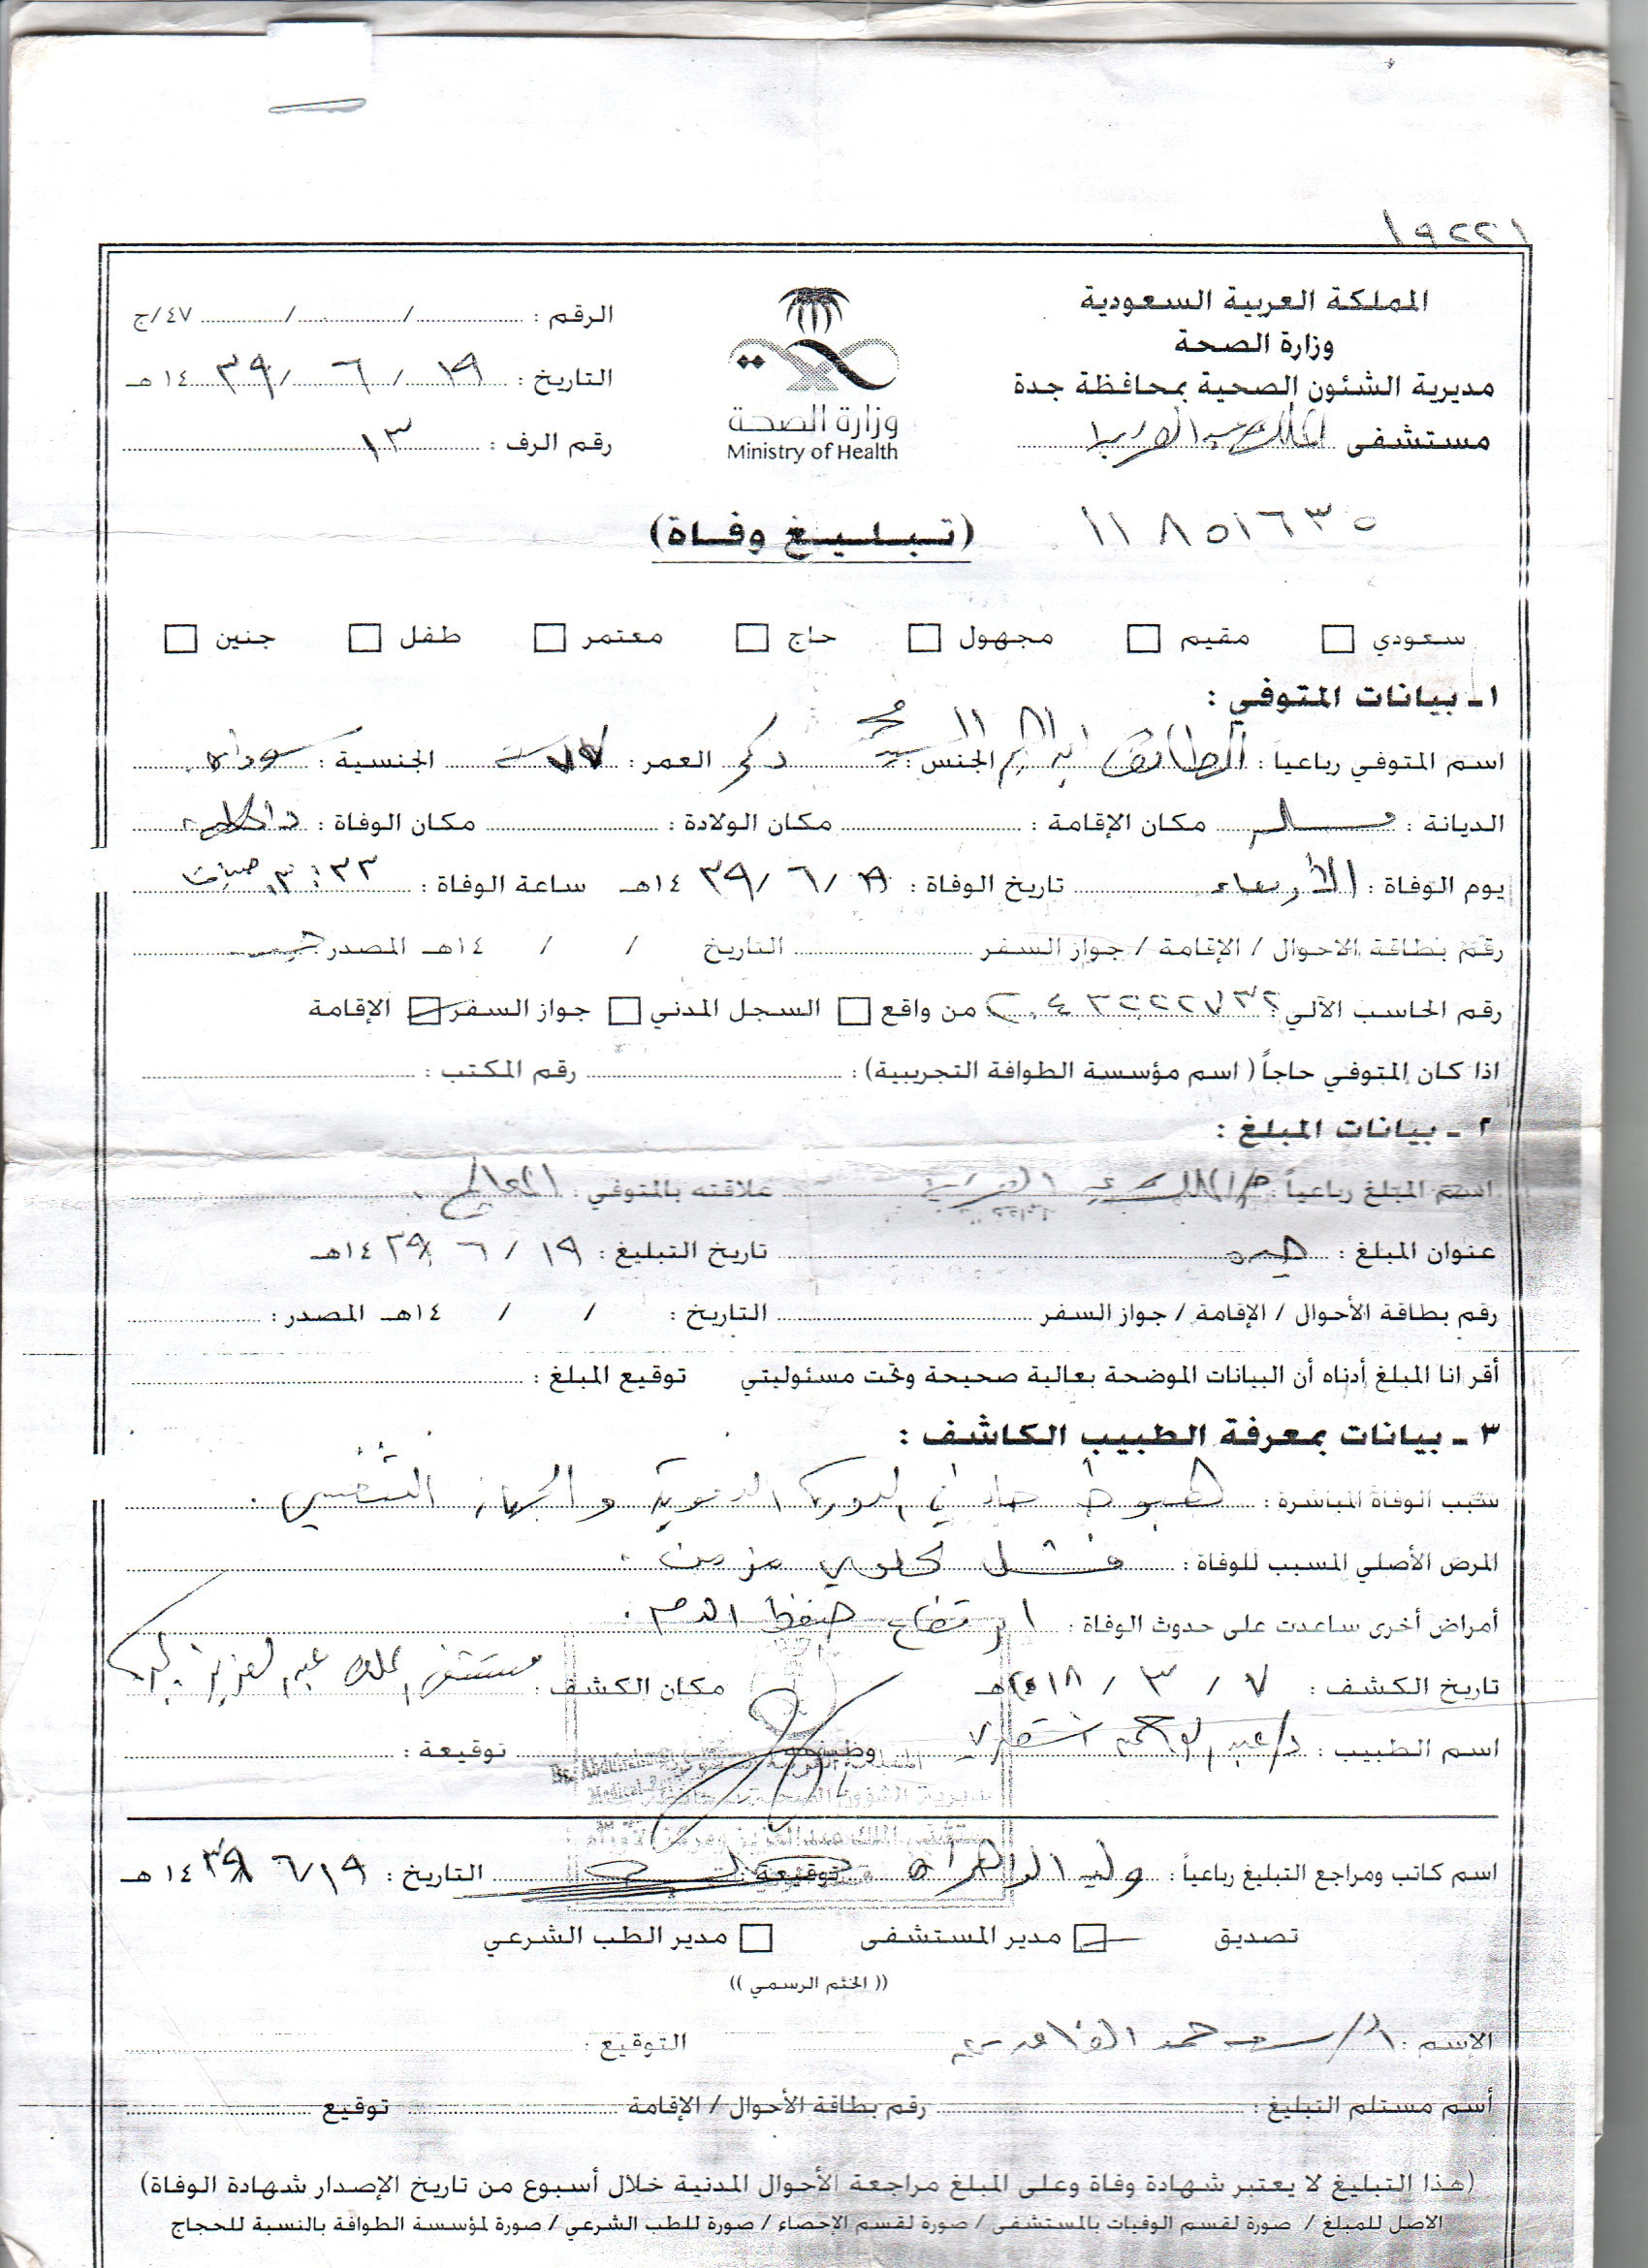 ١٩٢٢١
المملكة العربية السعودية
وزارة الصحة
مديرية الشئون الصحية بمحافظة جدة
مستشفى الملك عبد العزيز
وزارة الصحة
Ministry of Health
الرقم : / / ٤٧/ج
التاريخ : ١٩ / ٦ / ١٤٣٩هـ
رقم الرف : ١٣
١١٨٥١٦٣٥
(تبليغ وفاة)
سعودي □ مقيم □ مجهول □ حاج □ معتمر □ طفل □ جنين □
١ـ بيانات المتوفي :
اسم المتوفي رباعياً : الطائف ابراهيم الجنس : ذكر العمر : ٧٧ سنة الجنسية : سوداني
الديانة : مسلم مكان الإقامة : مكان الولادة : مكان الوفاة :
يوم الوفاة : الأربعاء تاريخ الوفاة : ١٩ / ٦ / ١٤٣٩هـ ساعة الوفاة :
رقم بطاقة الاحوال / الإقامة / جواز السفر التاريخ / / ١٤هـ المصدر
رقم الحاسب الآلي من واقع □ السجل المدني □ جواز السفر ☑ الإقامة
اذا كان المتوفي حاجاً ( اسم مؤسسة الطوافة التجريبية) : رقم المكتب :
٢ ـ بيانات المبلغ :
اسم المبلغ رباعياً : م/ الملك عبد العزيز علاقته بالمتوفي : المعالج
عنوان المبلغ : جدة تاريخ التبليغ : ١٩ / ٦ ١٤٣٩هـ
رقم بطاقة الأحوال / الإقامة / جواز السفر التاريخ : / / ١٤هـ المصدر :
أقر انا المبلغ أدناه أن البيانات الموضحة بعالية صحيحة وتحت مسئوليتي توقيع المبلغ :
٣ ـ بيانات بمعرفة الطبيب الكاشف :
سبب الوفاة المباشرة : هبوط حاد في الدورة الدموية والجهاز التنفسي .
المرض الأصلي المسبب للوفاة : فشل كلوي مزمن .
أمراض أخرى ساعدت على حدوث الوفاة : ارتفاع ضغط الدم .
تاريخ الكشف : ٧ / ٣ / ٢٠١٨ مكان الكشف : مستشفى الملك عبد العزيز بجدة
اسم الطبيب : د/عبد الرحمن وظيفته توقيعة :
اسم كاتب ومراجع التبليغ رباعياً : وليد توقيعة : التاريخ : ١٩/٦ ١٤٣٩هـ
تصديق ☑ مدير المستشفى □ مدير الطب الشرعي
(( الختم الرسمي ))
الإسم : أ/ التوقيع :
أسم مستلم التبليغ : رقم بطاقة الأحوال / الإقامة توقيع
(هذا التبليغ لا يعتبر شهادة وفاة وعلى المبلغ مراجعة الأحوال المدنية خلال أسبوع من تاريخ الإصدار شهادة الوفاة)
الاصل للمبلغ / صورة لقسم الوفيات بالمستشفى / صورة لقسم الإحصاء / صورة للطب الشرعي / صورة لمؤسسة الطوافة بالنسبة للحجاج